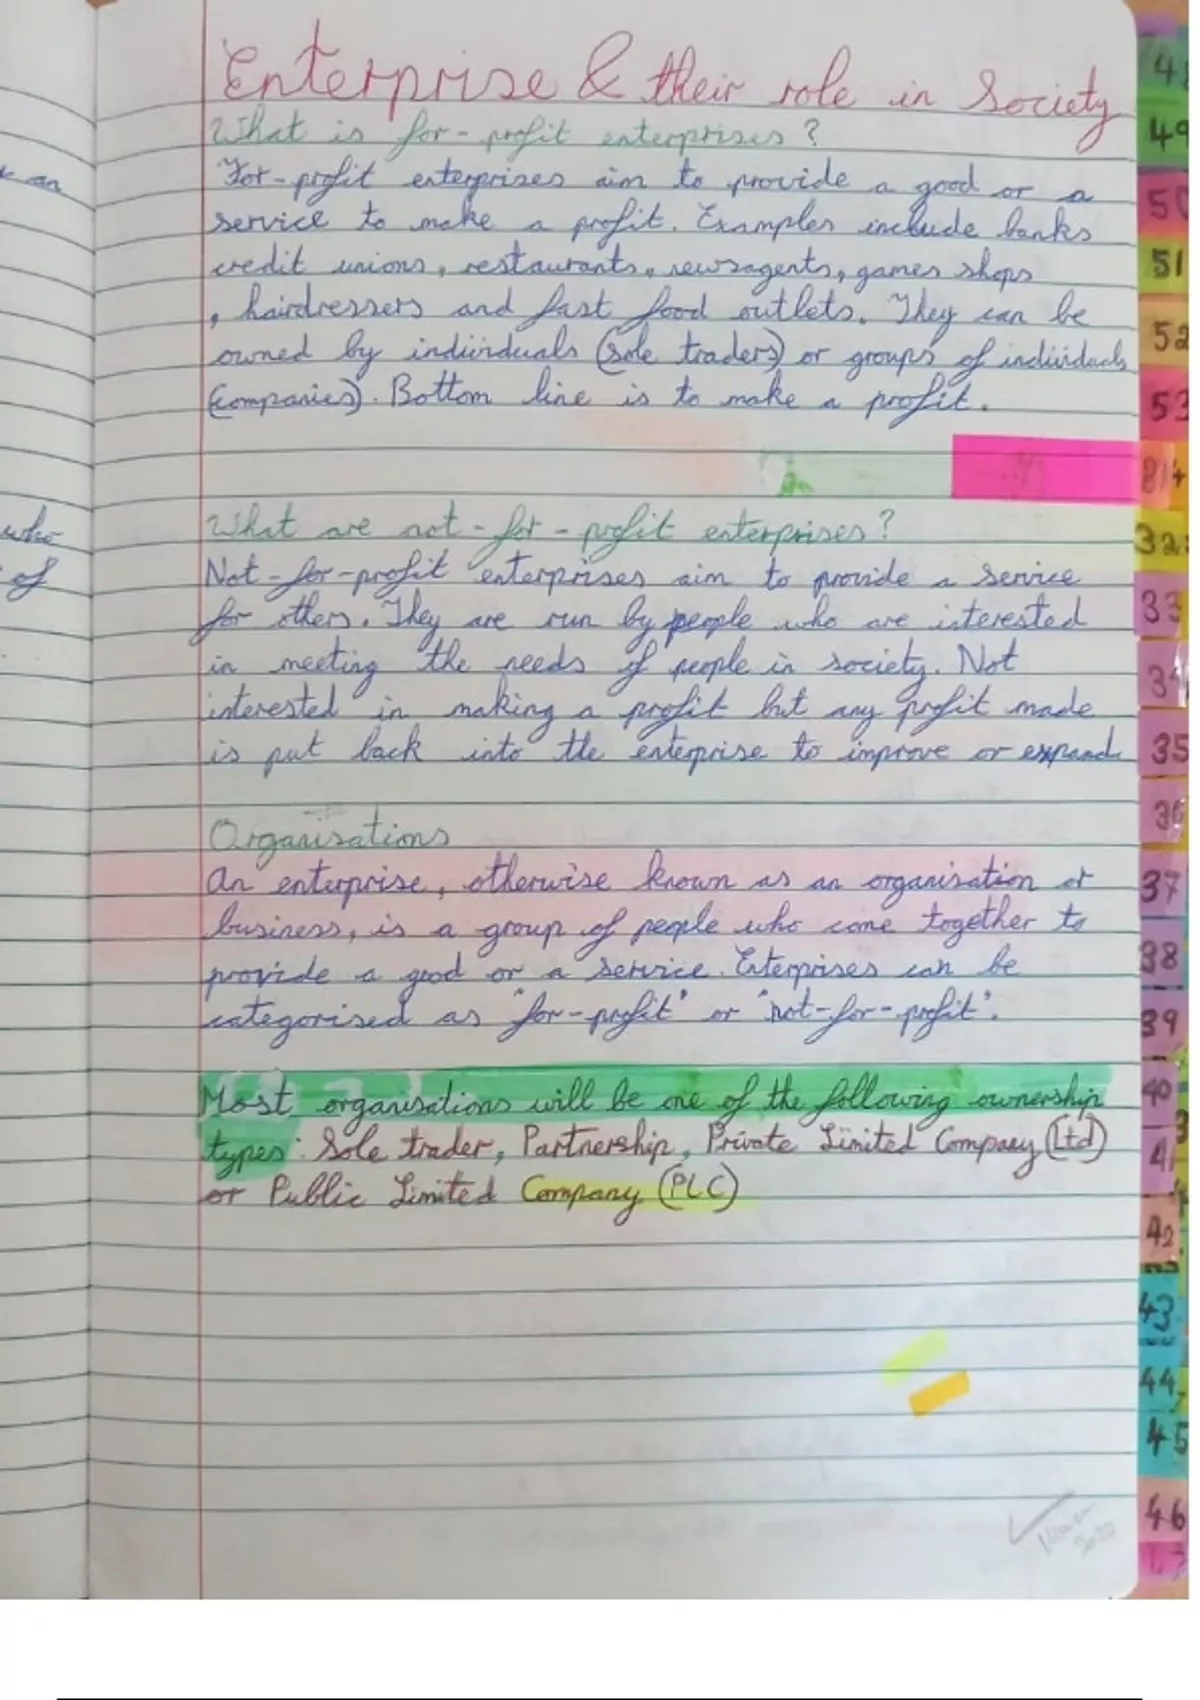 Enterprise & their role in Society
What is for-profit enterprises?
For-profit enterprises aim to provide a good or a
service to make a profit. Examples include banks
credit unions, restaurants, newsagents, games shops
, hairdressers and fast food outlets. They can be
owned by individuals (sole traders) or groups of individuals
(companies). Bottom line is to make a profit.
What are not-for-profit enterprises?
Not-for-profit enterprises aim to provide a service
for others. They are run by people who are interested
in meeting the needs of people in society. Not
interested in making a profit but any profit made
is put back into the enterprise to improve or expand
Organisations
An enterprise, otherwise known as an organisation or
business, is a group of people who come together to
provide a good or a service. Enterprises can be
categorised as "for-profit" or "not-for-profit".
Most organisations will be one of the following ownership
types: Sole trader, Partnership, Private Limited Company (Ltd)
or Public Limited Company (PLC)
an
who
of
49
50
51
52
53
33
35
36
37
38
39
40
41
42
43
44
45
46
2020